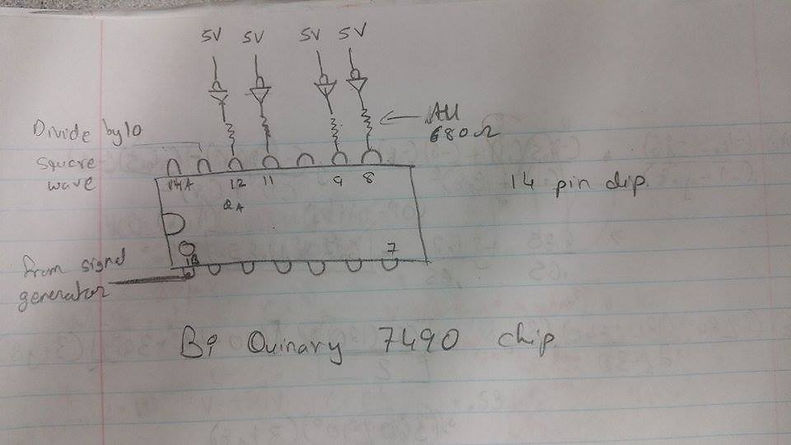 5V 5V 5V 5V
Divide by 10
square
wave
All
680Ω
14A 12 11 9 8
QA
14 pin dip.
7
1B
from signal
generator
Bi Quinary 7490 chip